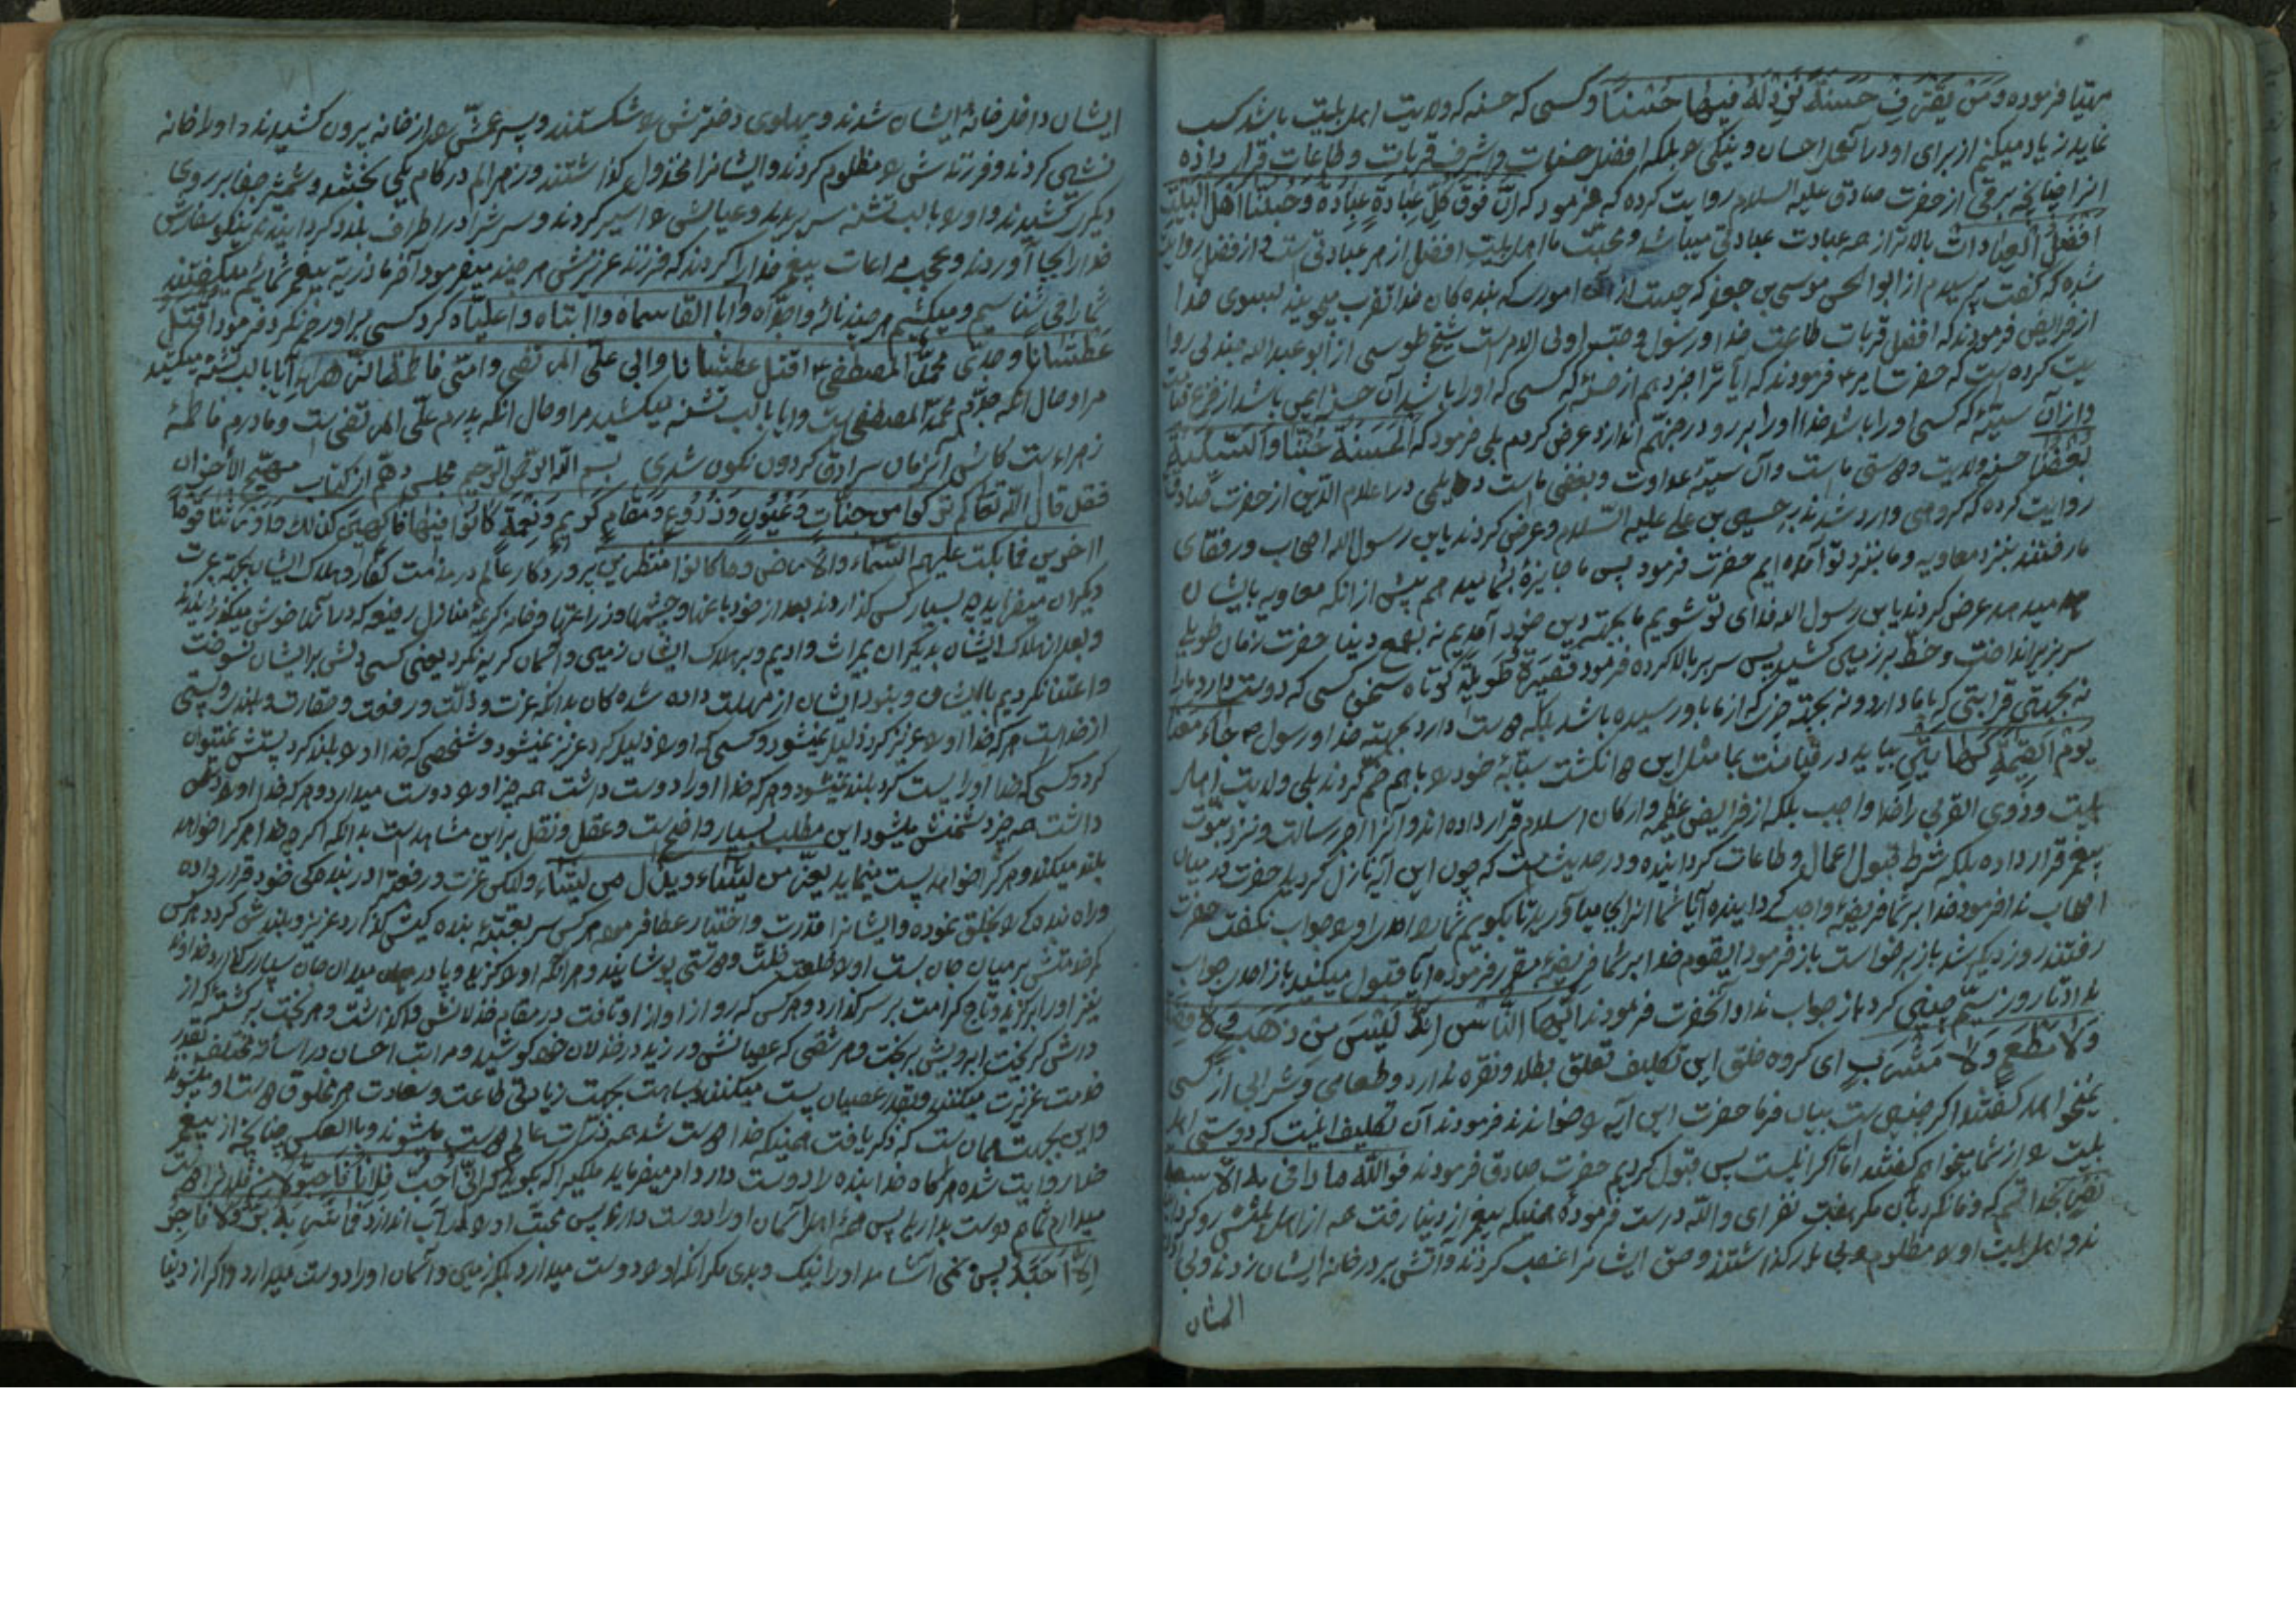 مهیا فرموده و مَنْ یَقْتَرِفْ حَسَنَةً نَزِدْ لَهُ فیها حُسْناً و کسی که حسنه که ولایت اهل بیت باشد کسب
نماید زیاد میکنم از برای او در آنمحل احسان و نیکی را بلکه افضل حسنات و اشرف قربات و طاعات قرار داده
انرا چنانچه برقی از حضرت صادق علیه السلام روایت کرده که فرمود که اِنَّ فَوْقَ کُلِّ عِبادَةٍ عِبادَةً وَ حُبُّنا اَهْلَ الْبَیْتِ
اَفْضَلُ الْعِبادات بالاتر از هر عبادت عبادتی میباشد و محبّت ما اهل بیت افضل از هر عبادتی است و از فضل روایت
شده که گفت پرسیدم از ابو الحسن موسی بن جعفر که چیست از امور که بنده کان خدا تقرب میجویند بسوی خدا
از فرایض فرمودند که افضل قربات طاعت خدا و رسول و حبّ اولی الامر است شیخ طوسی از ابو عبد الله جدلی روا
یت کرده است که حضرت امیر فرمودند که ایا ترا خبر دهم از حسنه که کسی که او را باشد آن حسنه ایمن باشد از فزع قیامت
و از آن سیّئه که کسی او را باشد خدا او را برو در جهنّم اندازد عرض کردم بلی فرمود که اَلْحَسَنَةُ حُبُّنا وَالسَّیِّئَةُ
بُغْضُنا حسنه ولایت و دوستی ماست و آن سیّئه عداوت و بغض ماست دیلمی در اعلام الدّین از حضرت صادق
روایت کرده که گروهی وارد شدند بر حسین بن علی علیه السّلام و عرض کردند یابن رسول الله اصحاب و رفقای
ما رفتند بنزد معاویه و ما بنزد تو آمده ایم حضرت فرمود پس ما جایزه بشما میدهم بیش از انکه معاویه بایشان
میدهد عرض کردند یابن رسول الله فدای تو شویم ما بجهته دین خود آمدیم نه بطمع دنیا حضرت زمان طویلی
سر بزیر انداخت و خطّ بر زمین کشید پس سر بالا کرده فرمود قَصیرَةٌ طَویلَةٌ کوتاه سخن کسی که دوست دارد ما را
نه بجهتی قرابتی که با ما دارد و نه بجهته چیزی که از ما باو رسیده باشد بلکه دوست دارد بجهته خدا و رسول جاءَ مَعَنا
یَوْمَ الْقِیٰمَةِ کَهاتَیْنِ بیاید در قیامت بما مثل این دو انگشت سبّابه خود را باهم ضمّ کردند بلی ولایت اهل
بیت و ذوی القربی را خدا واجب بلکه از فرایض عظیمه و ارکان اسلام قرار داده اند و آنرا اجر رسالت و مزد نبوّت
پیغمبر قرار داده بلکه شرط قبول اعمال و طاعات گردانیده و در حدیث است که چون این آیه نازل گردید حضرت در میان
اصحاب ندا فرمود خدا بر شما فریضه واجب گردانیده آیا شما انرا بجا میاورید تا بگویم شما را احدی او را جواب نگفت حضرت
رفتند روز دیگر شد باز برخواست باز فرمود ایقوم خدا بر شما فریضه مقرر فرموده آیا قبول میکنید باز احدی جواب
نداد تا روز سیّم چنین کرد باز جواب نداد آنحضرت فرمودند اَیُّهَا النّاسُ اِنَّهُ لَیْسَ مِنْ ذَهَبٍ وَلا فِضَّةٍ
وَلا مَطْعَمٍ وَلا مَشْرَبٍ ای گروه خلق این تکلیف تعلق بطلا و نقره ندارد و طعامی و شرابی از کسی
نمیخواهد گفتند اگر چنین است بیان فرما حضرت این آیه را خواندند فرمودند آن تکلیف اینست که دوستی اهل
بیت را از شما میخواهم گفتند امّا اگر اینست پس قبول کردیم حضرت صادق فرمودند فوالله ما وافی به الا سبعة
نفر بخدا قسم که وفا نکرد بآن مگر هفت نفر ای والله درست فرموده همینکه پیغمبر از دنیا رفت همه از اهل بیتش رو گردان
ند و اهل بیت او را مظلوم و بی یار گذاشتند و حق ایشانرا غصب کردند و آتش بر در خانه ایشان زدند و بی اذن
ایشان
ایشان داخل خانهٔ ایشان شدند و پهلوی دخترش را شکستند و پسر عمّش را از خانه بیرون کشیدند و او را خانه
نشین کردند و فرزندش را مظلوم کردند و ایشانرا مخذول گذاشتند و زهر الم در کام یکی بخشند و شمشیر جفا بر روی
دیگری کشیدند و او را با لب تشنه سر بریدند و عیالش را اسیر کردند و سرش را در اطراف بلاد گردانیدند نیکو سفارش
خدا را بجا آوردند و عجب مراعات پیغمبر خدا را کردند که فرزند عزیزش هر چند میفرمود آخر ما ذریّه پیغمبر شمائیم میگفتند
شما را می شناسیم و میکشیم هر چند ناله واجدّاه وابا القاسماه واابتاه واعلیّاه کرد کسی بر او رحم نکرد فرمود اُقْتَلُ
عَطْشاناً وجدی محمّد المصطفی اقتل عطشاناً وابی علی المرتضی وامّی فاطمة الزّهراء آیا با لب تشنه میکشید
مرا و حال انکه جدّم محمّد المصطفی است وایا با لب تشنه میکشید مرا و حال انکه پدرم علی المرتضی است و مادرم فاطمهٔ
زهراء است کاش آنزمان سرادق گردون نگون شدی بسم الله الرّحمن الرّحیم مجلس دهّم از کتاب مهیّج الأحزان
فقد قال الله تعالی کم ترکوا من جنّات وَعُیُونٍ وَزُرُوعٍ وَمَقامٍ کَریمٍ وَنِعْمَةٍ کانُوا فیها فاکِهینَ کذلک واورثنا قوما
اخرین فما بکت علیهم السّماء والأرض وما کانوا منظرین پروردگار عالم در مذّمت کفّار و هلاک ایشان بجهته عبرت
دیگران میفرماید چه بسیار کس گذاردند بعد از خود باغها و چشمها و زراعتها و خانه کریمه منازل رفیعه که در آنها خوش میگذرانیدند
و بعد از هلاک ایشان بدیگران میراث دادیم و بر هلاک ایشان زمین و آسمان گریه نکرد یعنی کسی دلش بر ایشان نسوخت
واعتنا نکردیم بایشان و نبودند ایشان از مهلت داده شده کان بدانکه عزت و ذلّت و رفعت و حقارت و بلندی و پستی
از خداست هر که خدا او را عزیز کرد ذلیل نمیشود و کسی که او را ذلیل کرد عزیز نمیشود و شخصی که خدا او را بلند کرد پستش نمیتوان
کرد و کسی که خدا او را پست کرد بلند نمیشود و هر که خدا او را دوست داشت همه چیز او را دوست میدارد و هر که خدا او را دشمن
داشت همه چیز دشمنش میشود این مطلب بسیار واضح است و عقل و نقل بر این مشاهد است بدانکه اگر چه خدا هر که را خواهد
بلند میکند و هر که را خواهد پست مینماید یعزّ من یشاء ویذلّ من یشاء ولکن عزت و رفعت را در بنده کی خود قرار داده
وراه بنده کی را بخلق نموده و ایشانرا قدرت و اختیار عطا فرموده هر کس سر بعتبهٔ بنده کیش گذارد عزیز و بلندش کرد و هر کس
کمر خدمتش بر میان جان بست او را خلعت خلّت و دوستی پوشانید و هر انکه او را گزید و پا در میدان جان سپاری گذارد خداوند
نیز او را برگزید و تاج کرامت بر سر گذارد و هر کس که رو از او تافت در مقام خذلانش واگذاشت و هر بخت برگشته که از
درش گریخت ابرویش بریخت و هر شقی که عصیانش ورزید در خذلان خود کوشید و مراتب احسان در اسائه مختلف بقدر
خدمت عزیزت میکنند و بقدر عصیان پست میکنند و بسا هست بجهت زیادتی طاعت و سعادت هر مخلوق دوست او میشوند
واین بجهت همان است که ذکر یافت همینکه خدا دوست شد همه ذرّات عالم دوست میشوند و بالعکس چنانچه از پیغمبر
خدا روایت شده هر گاه خدا بنده را دوست دارد امر میفرماید ملکی را که بگوید که اِنّی اُحِبُّ فُلاناً فَاَحِبُّوهُ من فلانرا دوست
میدارم شما هم دوست بدارید پس همهٔ اهل آسمان او را دوست دارند پس محبت او را در آب اندازد فما شرب به بَرٌّ ولا فاجر
اِلّا اَحَبَّهُ پس نمی آشامد او را نیک و بدی مگر انکه او را دوست میدارد بلکه زمین و آسمان او را دوست میدارد و اگر از دنیا